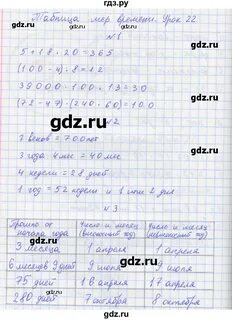 гдз.ру
Таблица мер времени. Урок 22
№1
5 + 18 · 20 = 365
(100 - 4) : 8 = 12
39000 : 100 : 13 = 30
(72 - 47) · (240 : 60) = 100
№2
7 веков = 700 лет.
3 года 4 мес = 40 мес
4 недели = 28 дней
1 год = 52 недели и 1 или 2 дня
№3
Прошло от начала года
Число и месяц (високосный год)
Число и месяц (невисокосный год)
3 месяца 1 апреля 1 апреля
9 июня 9 июня
75 дней 16 апреля 17 апреля
280 дней 7 октября 8 октября
gdz.ru